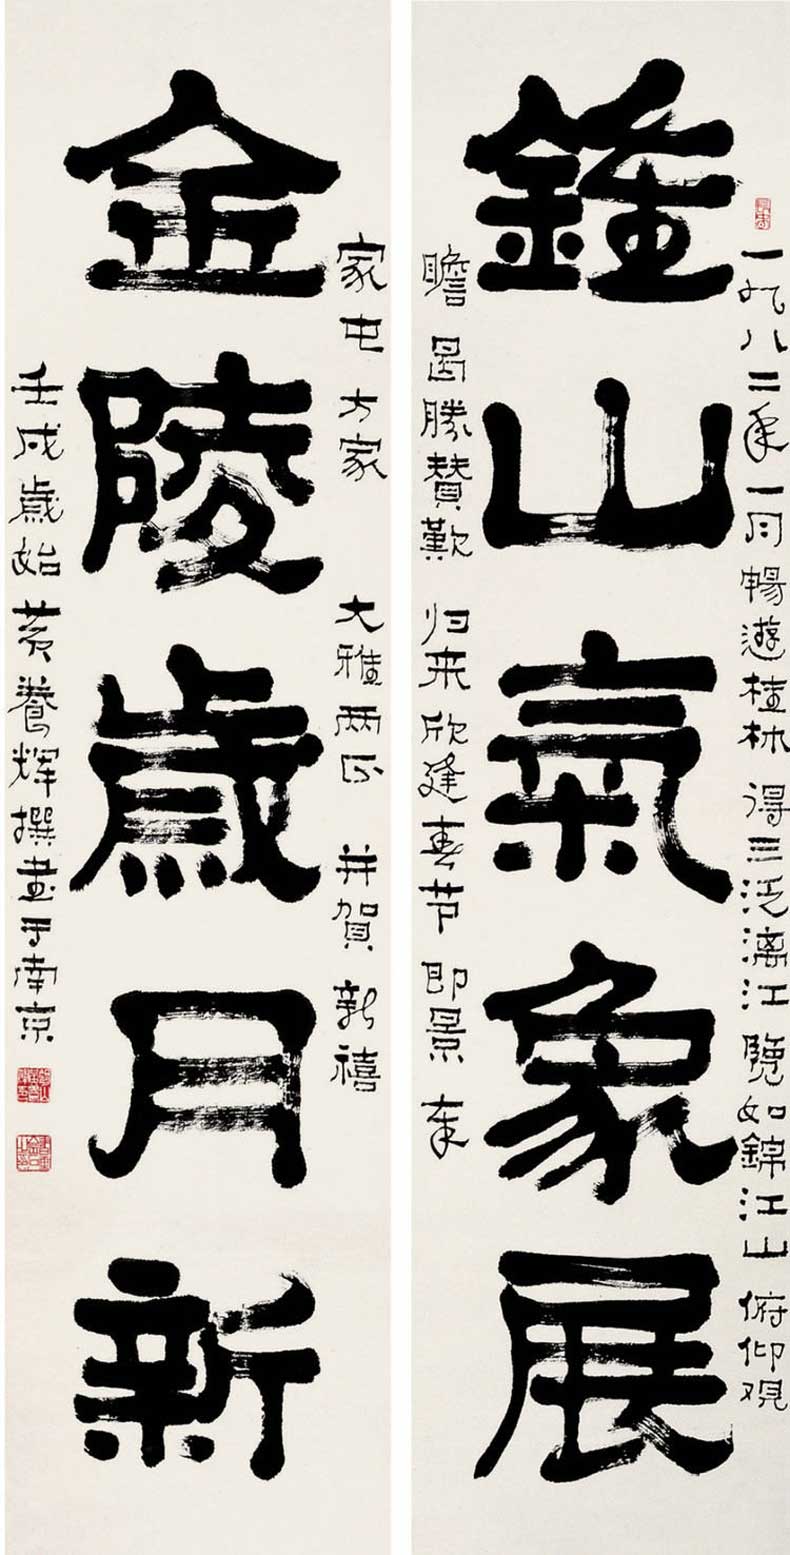 鍾山氣象展
一九八二年一月暢遊桂林得三泛漓江覽如錦江山俯仰观
瞻曷勝贊歎归来欣逢春节即景奉
金陵歲月新
家屯方家大雅两正并賀新禧
壬戌歲始黄養輝撰書于南京